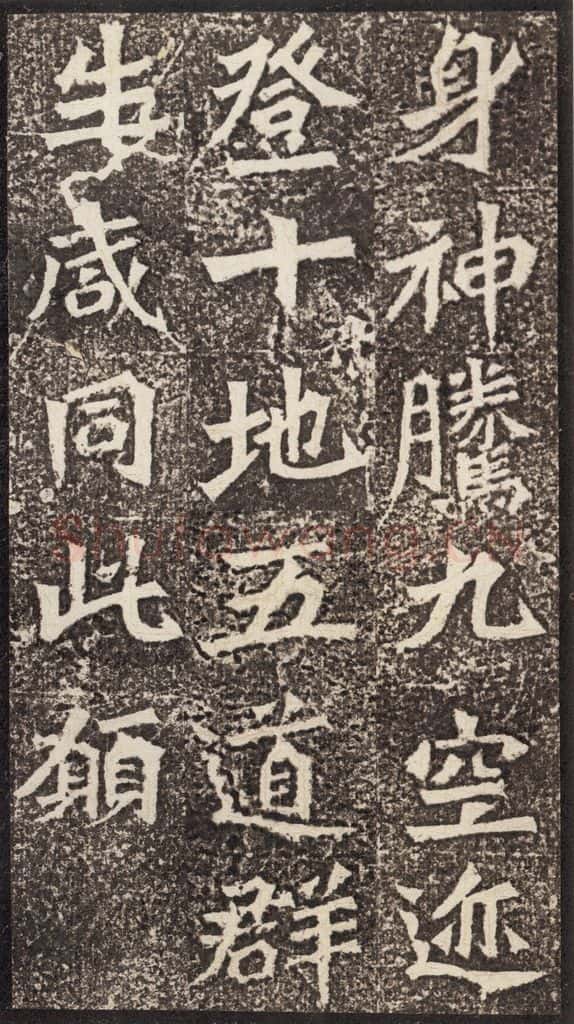 身神騰九空迹
登十地五道群
生咸同此願
shufawang.CN